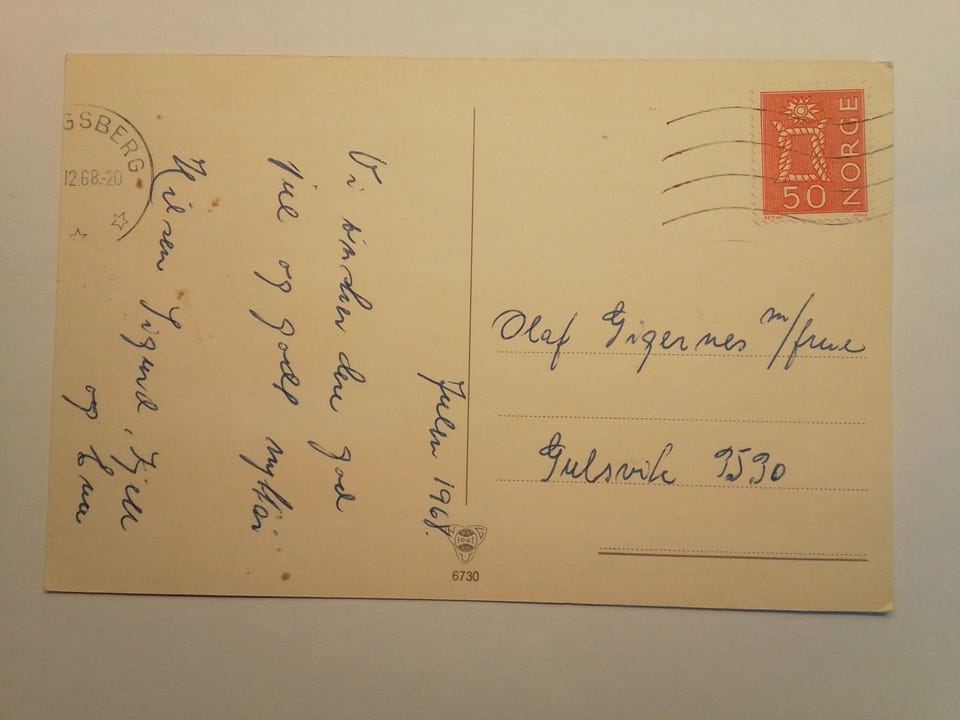 GSBERG
12.68.-20
Julen 1968.
Vi ønsker dere god
jul og godt nyttår
Hilsen Sigurd, Kjell
og Eva
NORGE
50
Olaf Gigernes m/frue
Gulsvik 3530
6730